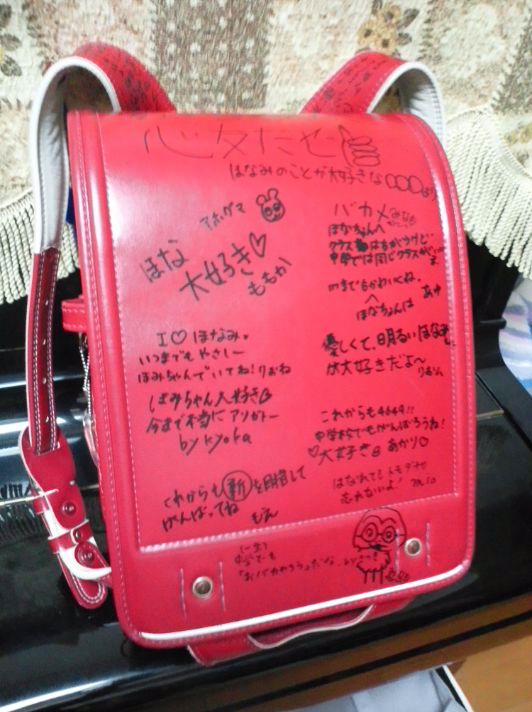 心友だぜ
ほなみのことが大好きな〇〇〇より
アホグマ
ほな
大好き♡
ももか
バカメ
ほなちゃんへ
クラスはちがうけど…
中学では同じクラスがいい
いつまでもかわいくね。
ほなちゃんは
I♡ほなみ。
いつまでも やさしー
ほみちゃんでいてね!りおな
優しくて、明るいほなみ
が大好きだよ~
ほみちゃん大好き
今まで本当にアリガトー
by kyoka
これからも4649!!
中学校でもがんばろうね!
♡大好き あかり♡
これからも新を目指して
がんばってね
もえ
はなれても
忘れないよ!
一生!